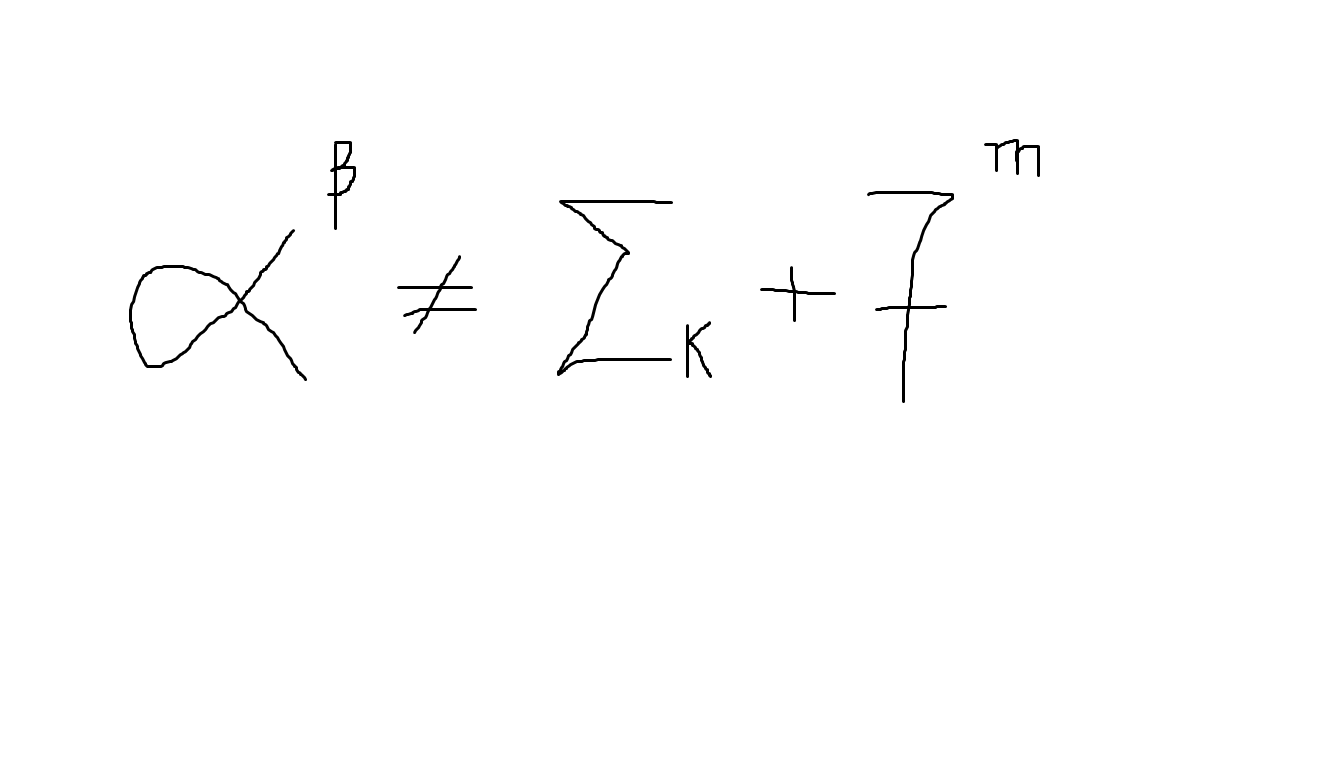 α^β ≠ Σ_K + 7^m